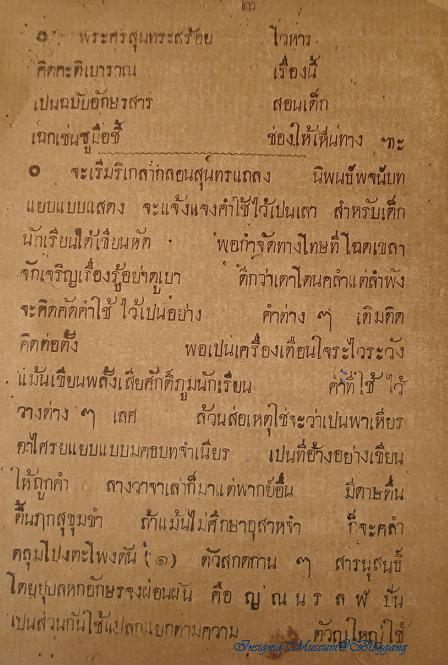 ๒
๐ พระศรีสุนทระสร้อย โวหาร
คิดคะติเบาราณ เรื่องนี้
เปนฉบับอักษรสาร สอนเด็ก
เฉกเช่นชูมือชี้ ช่องให้เห็นทาง ฯะ
๐ จะเริ่มริเกลากลอนสุนทรแถลง นิพนธ์พจนับท
แยบแบบแสดง จะแจ้งแจงคำใช้ไว้เปนเลา สำหรับเด็ก
นักเรียนได้เขียนหัด พอกำจัดทางโทษที่โฉดเขลา
จักเจริญเรื่องรู้อย่าดูเบา ดีกว่าเดาโดนคลำแต่ลำพัง
จะคิดคัดคำใช้ ไว้เปนอย่าง คำต่าง ๆ เติมติด
คิดต่อตั้ง พอเปนเครื่องเตือนใจระไวระวัง
แม้นเขียนพลั้งเสียศักดิ์ภูมนักเรียน คำที่ใช้ ไว้
วางต่าง ๆ เลศ ล้วนส่อเหตุใช่จะว่าเปนพาเหียร
อาไศรยแยบแบบมคธบทจำเนียร เปนที่อ้างอย่างเขียน
ให้ถูกคำ ลางวาจาเล่าก็มาแต่พากย์อื่น มีดาษดื่น
ฦกสุขุมขำ ถ้าแม้นไม่ศึกษาอุสาหจำ ก็จะคลำ
คลุมโปงตะโพงดัน (๑) ตัวสกดทาน ๆ สารนุสนธิ์
ผ่อนผัน คือ ญ ณ น ร ล ฬ ปัน
เปนส่วนกันใช้แปลกแยกตามความ ตัวญใหญ่ใช้
Insignia Museum@Bloggang